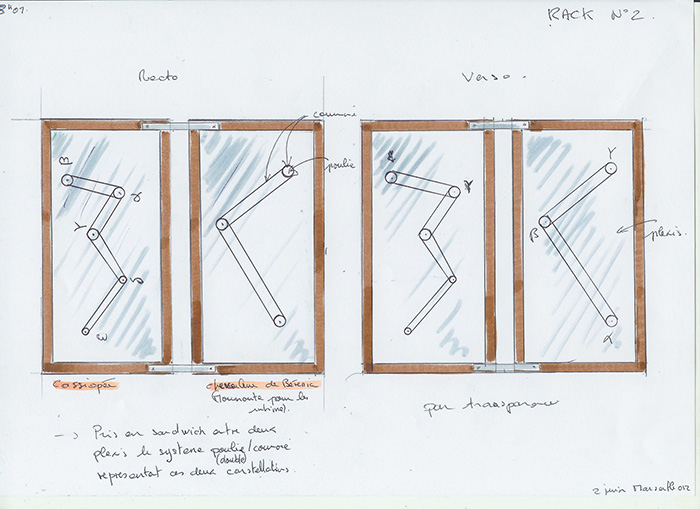 8h01.
RACK N°2.
Recto
Verso.
courroie
poulie
β
α
γ
δ
ω
γ
β
plexis.
α
Cassiopée
chevelure de Bérénice
(Mounouta pour les
intimes).
par transparence
-> Pris en sandwich entre deux
plexis le systeme poulie/courroie
(double)
representant ces deux constellations.
2 juin Marseille 012